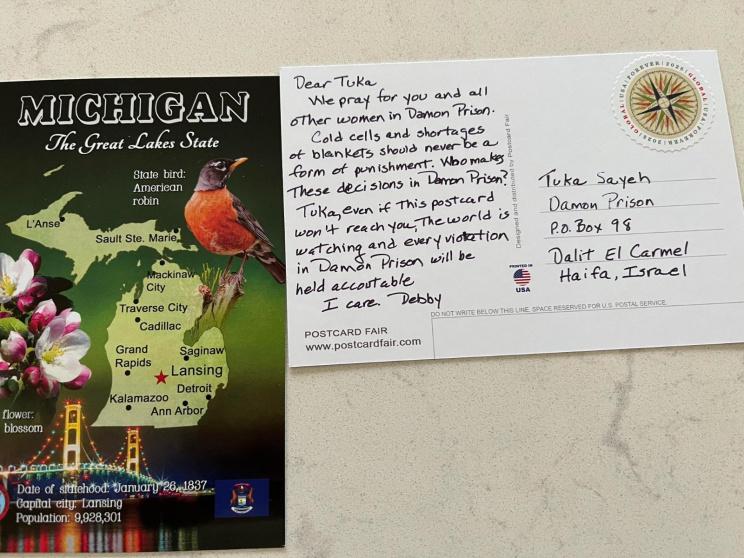 MICHIGAN
The Great Lakes State
State bird:
American
robin
L'Anse
Sault Ste. Marie
Mackinaw
City
Traverse City
Cadillac
Grand
Rapids
Saginaw
Lansing
Detroit
Kalamazoo
Ann Arbor
flower:
blossom
Date of statehood: January 26, 1837
Capital city: Lansing
Population: 9,928,301
Dear Tuka
We pray for you and all
other women in Damon Prison.
Cold cells and shortages
of blankets should never be a
form of punishment. Who makes
These decisions in Damon Prison?
Tuka, even if this postcard
won't reach you, The world is
watching and every violation
in Damon Prison will be
held accoutable
I care. Debby
POSTCARD FAIR
www.postcardfair.com
Designed and distributed by Postcard Fair
PRINTED IN
USA
GLOBAL USA FOREVER 2025
GLOBAL USA FOREVER 2025
Tuka Sayeh
Damon Prison
P.O. Box 98
Dalit El Carmel
Haifa, Israel
DO NOT WRITE BELOW THIS LINE. SPACE RESERVED FOR U.S. POSTAL SERVICE.